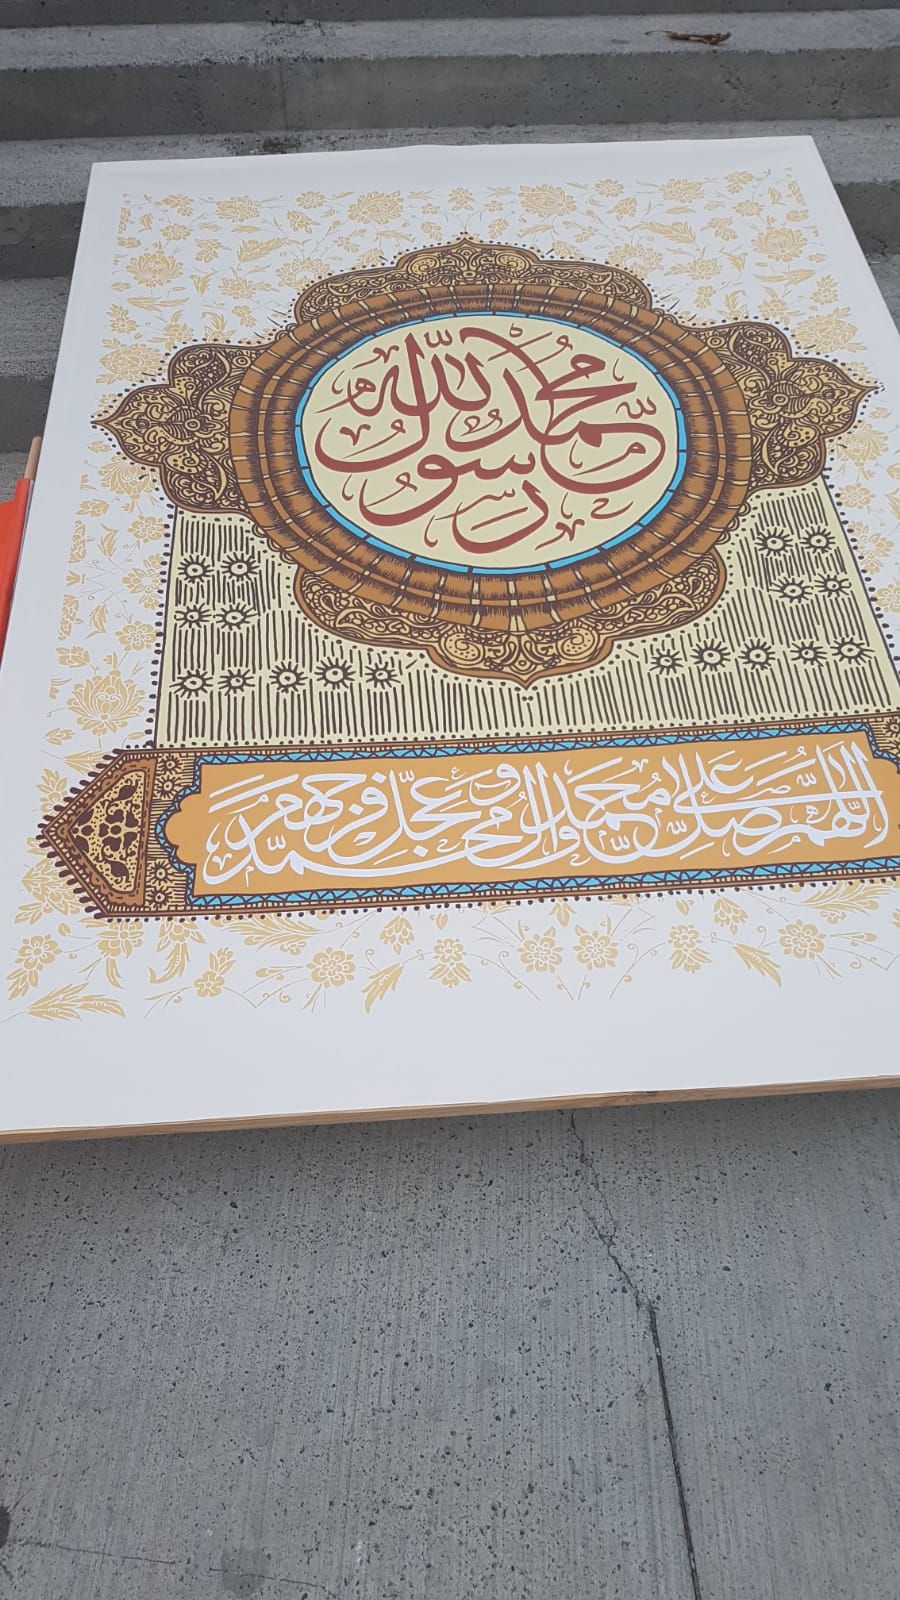 محمد رسول الله
اللهم صل على محمد وآل محمد وعجل فرجهم